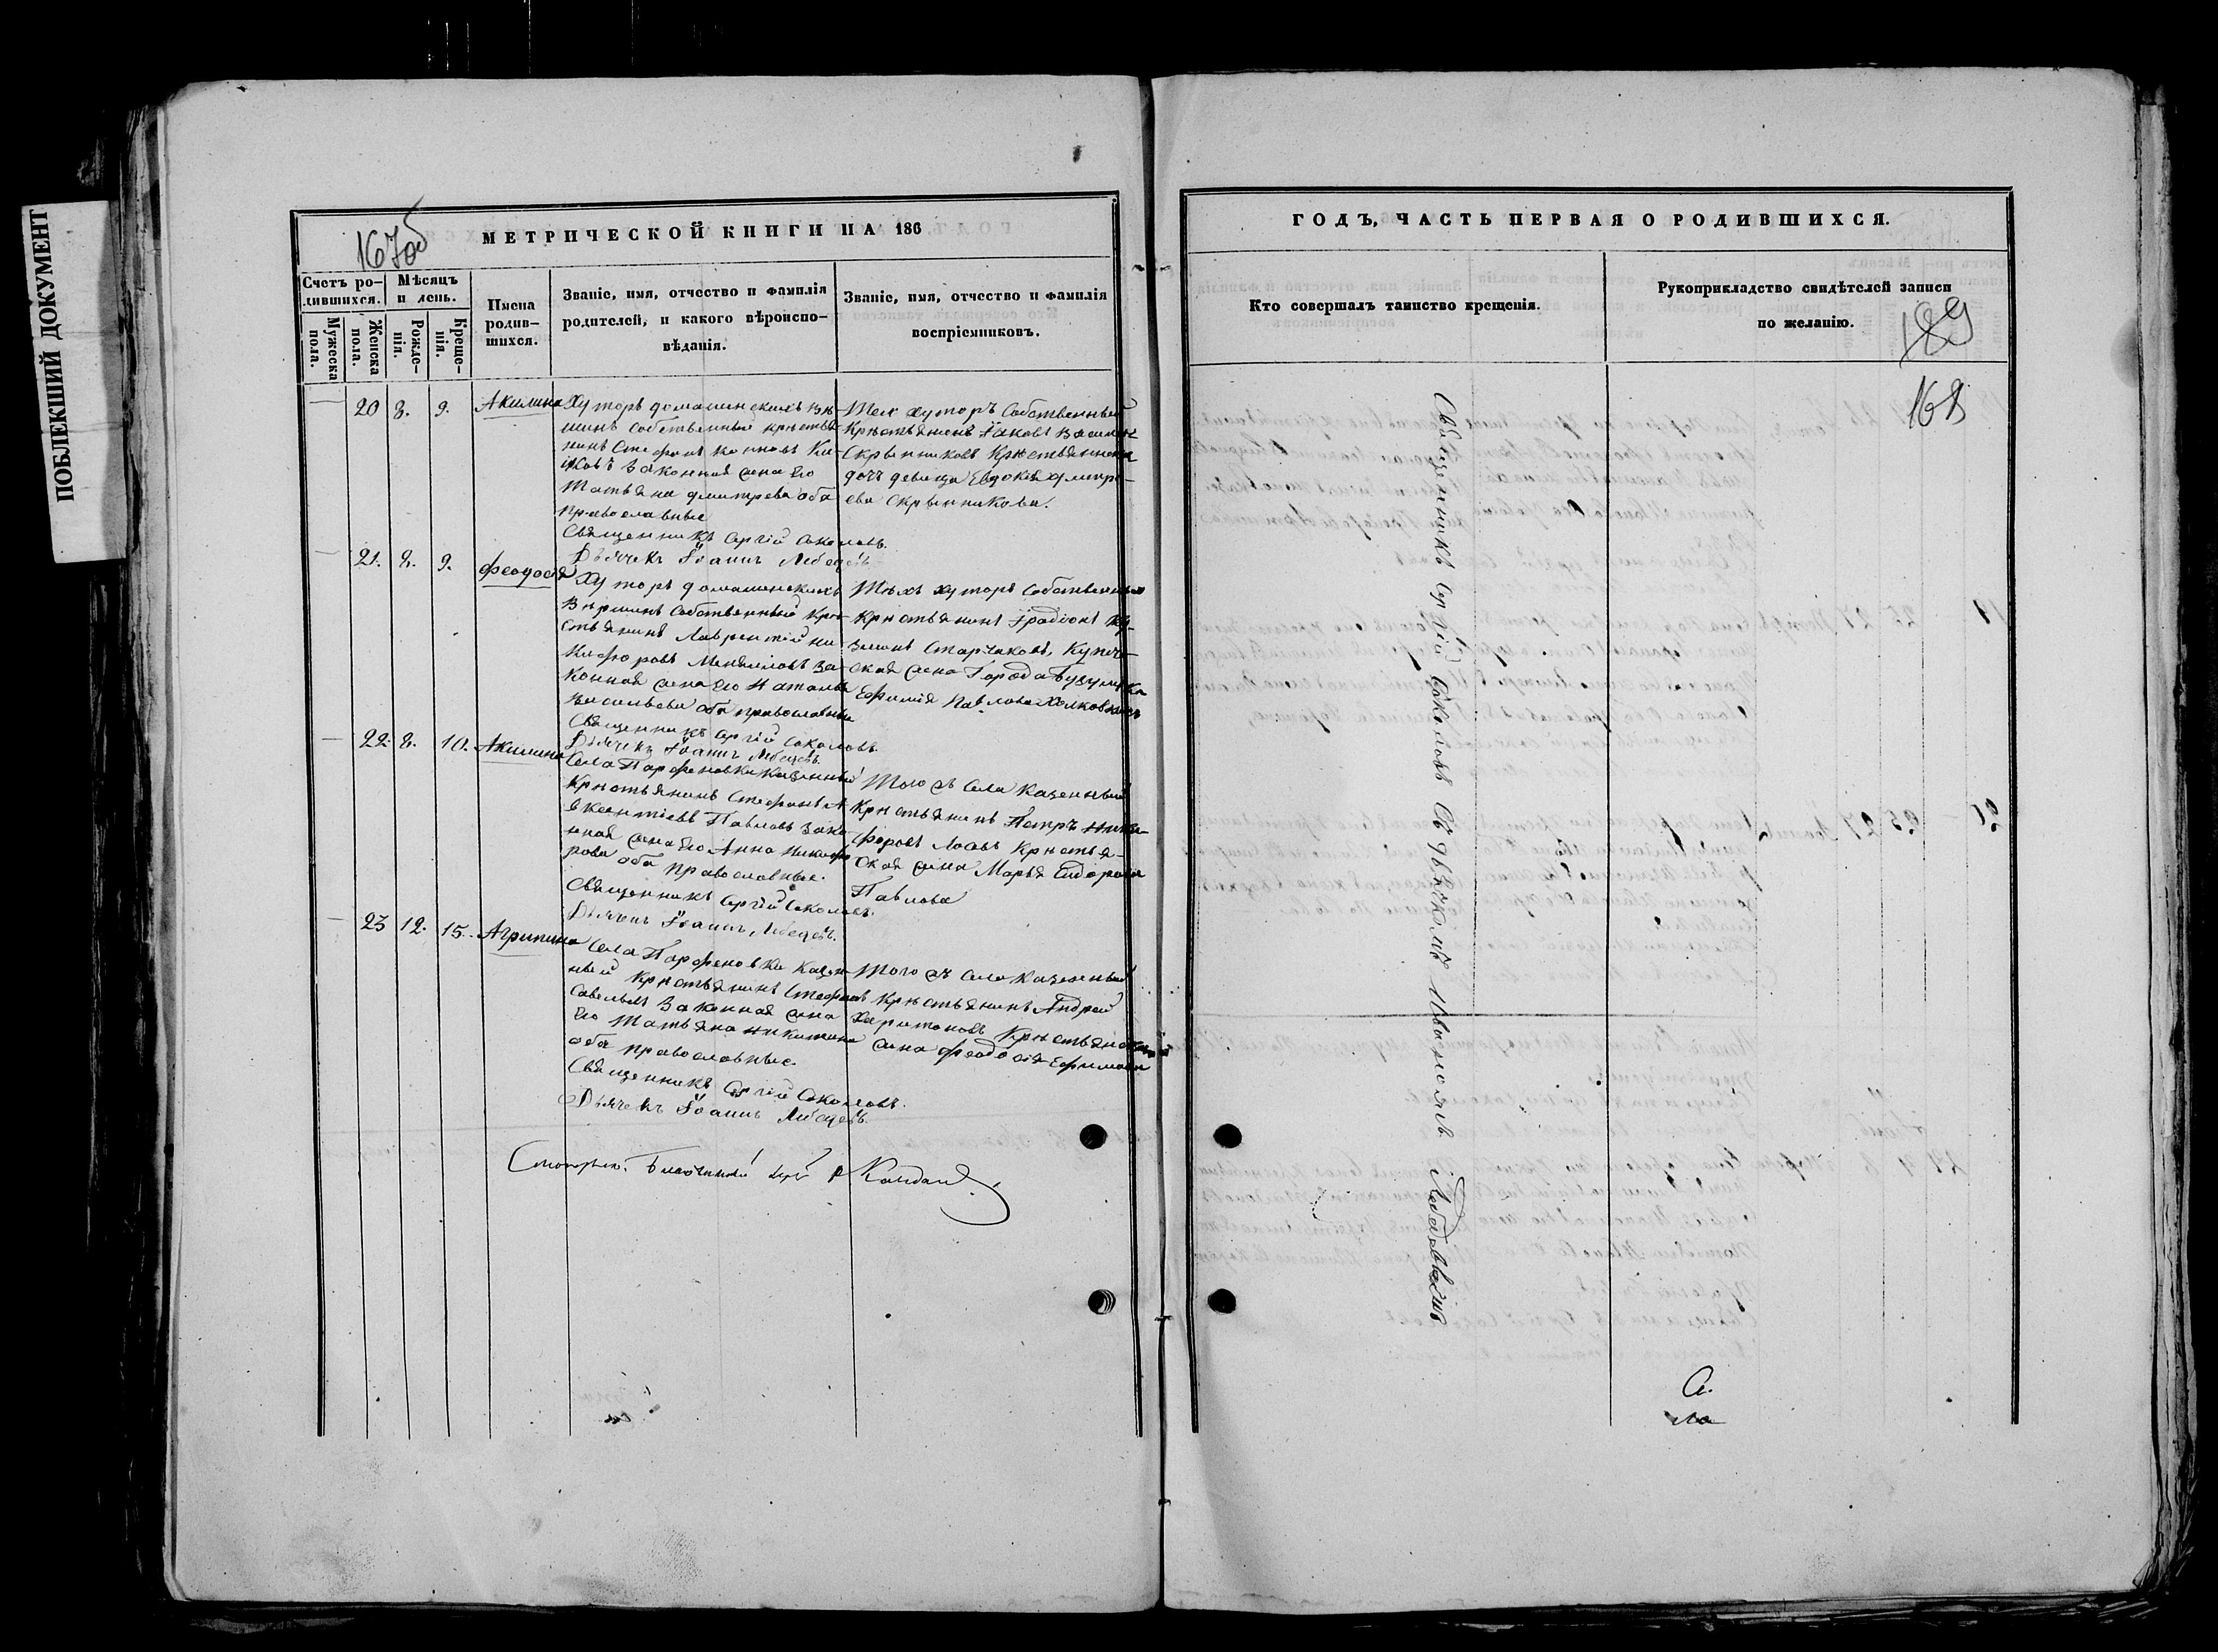 ПОБЛЕКШИЙ ДОКУМЕНТ
167об
МЕТРИЧЕСКОЙ КНИГИ НА 186
Счетъ ро-
дившихся.
Мѣсяцъ
и день.
Мужеска
пола.
Женска
пола.
Рожде-
нія.
Креще-
нія.
Имена
родив-
шихся.
Званіе, имя, отчество и фамилія
родителей, и какого вѣроиспо-
вѣданія.
Званіе, имя, отчество и фамилія
воспріемниковъ.
20 8. 9. Акилина
Хуторъ домашинскихъ вѣ
шинъ Собственный крестья
нинъ Стефанъ
законная жена его
Татьяна Дмитрева оба
православные
Священникъ Сергій Соколовъ.
Дьячекъ Іоаннъ Лебедевъ
Тѣхъ хуторъ Собственный
Крѣстьянинъ Іаковъ Васильевъ
Скрынниковъ Крѣстьянская
дочь девица Евдокія Дмитри-
ева Скрынникова.
21. 8. 9. Феодосія
Хуторъ домашинскихъ
Вершинъ Собственный Кре-
стьянинъ Лаврентій Ни-
кифоровъ за-
конная жена его Наталья
Васильева оба православные
Священникъ Сергій Соколовъ
Дьячекъ Іоаннъ Лебедевъ.
Тѣхъ хуторъ Собственный
Крѣстьянинъ Ку-
зминъ Старчаковъ, Купече-
ская жена Города Бузулука
Ефимія Павлова
22. 8. 10. Акилина
Села Парфеновки Казенный
Крѣстьянинъ Стефанъ А
вксентіевъ Павловъ зако
нная жена его Анна Никифо
рова оба православные.
Священникъ Сергій Соколовъ.
Дьячекъ Іоаннъ Лебедевъ.
Того жъ Села Казенный
Крѣстьянинъ Петръ Ники-
форовъ Крѣстья-
ская жена Марья
Павлова
23 12. 15. Агрипина
Села Парфеновки Казен
ный Крѣстьянинъ Стефанъ
Савельевъ Законная жена
его Татьяна Никитина
оба православные.
Священникъ Сергій Соколовъ.
Дьячекъ Іоаннъ Лебедевъ.
Того жъ Села Казенный
Крѣстьянинъ Андрей
Харитоновъ Крѣстьянская
жена Феодосія Ефимова
Смотрѣлъ: Благочинный
ГОДЪ, ЧАСТЬ ПЕРВАЯ О РОДИВШИХСЯ.
Кто совершалъ таинство крещенія.
Рукоприкладство свидѣтелей записи
по желанію.
189
168
Священникъ Сергій Соколовъ Съ дьячкомъ Іоанномъ Лебедевымъ